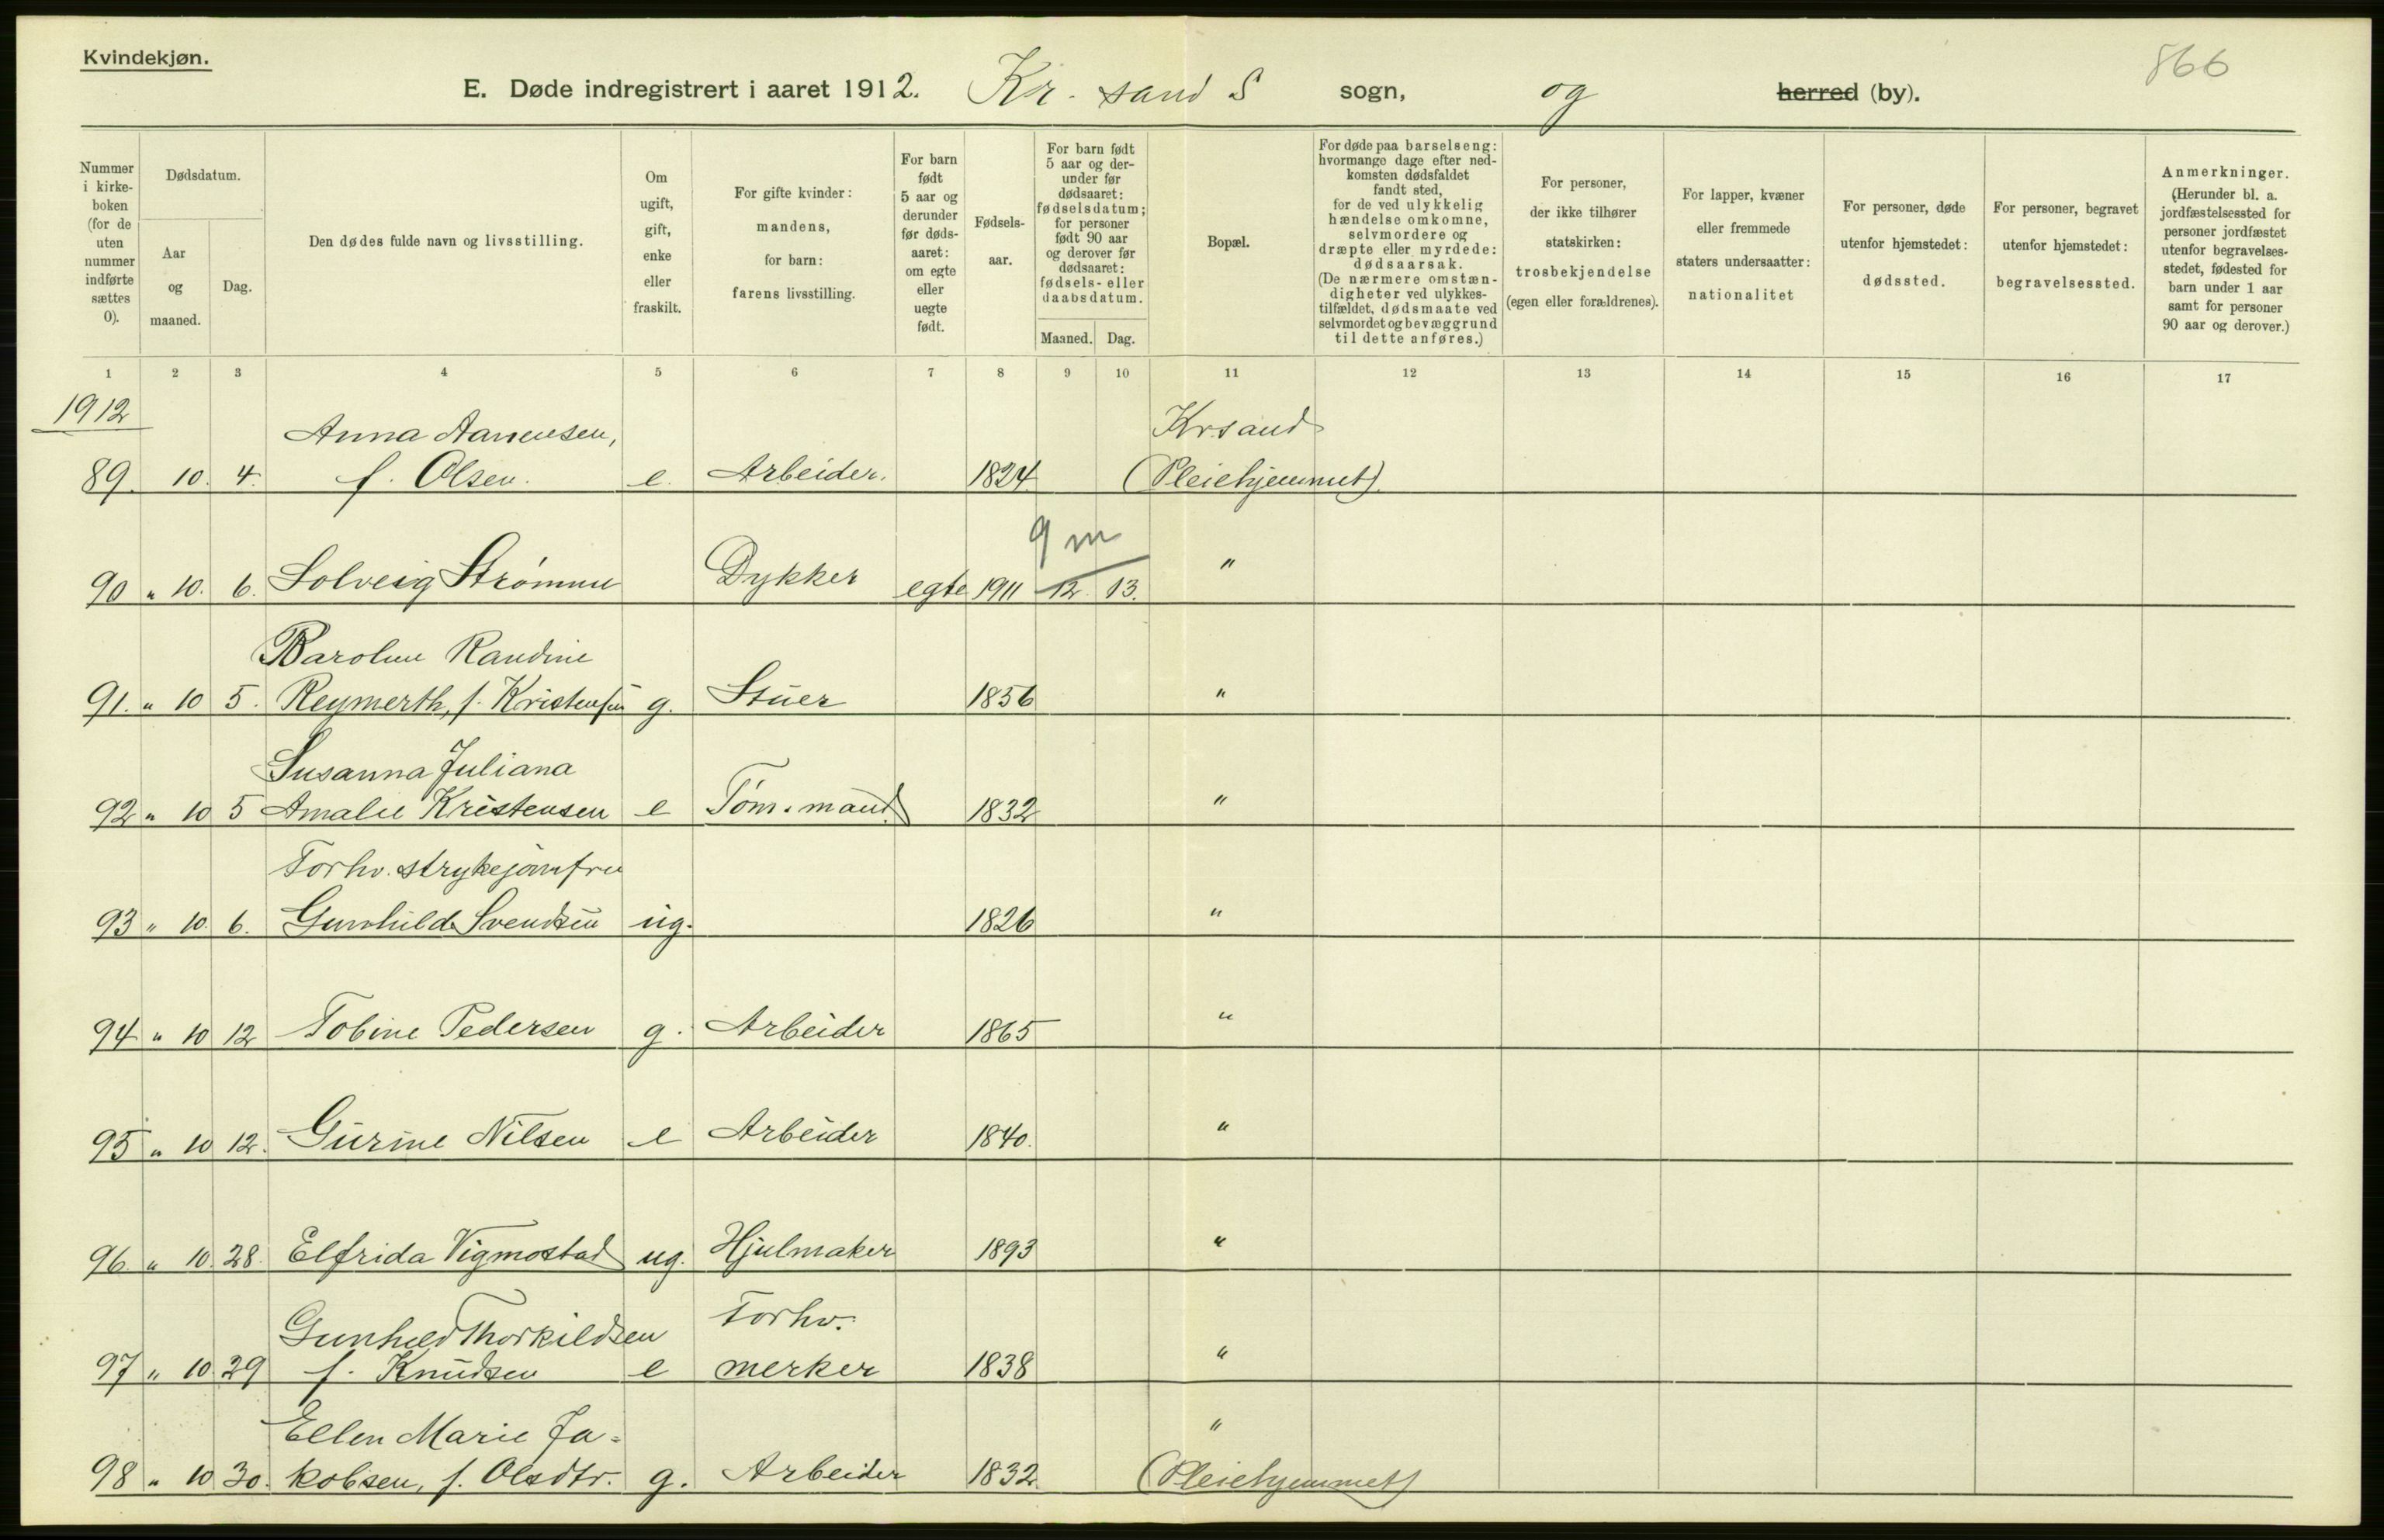 Kvindekjøn.
866
E. Døde indregistrert i aaret 1912. Kr.sand S sogn, og herred (by).
Nummer i kirke- boken (for de uten nummer indførte sættes 0).
Dødsdatum.
Aar og maaned.
Dag.
Den dødes fulde navn og livsstilling.
Om ugift, gift, enke eller fraskilt.
For gifte kvinder: mandens, for barn: farens livsstilling.
For barn født 5 aar og derunder før døds- aaret: om egte eller uegte født.
Fødsels- aar.
For barn født 5 aar og der- under før dødsaaret: fødselsdatum; for personer født 90 aar og derover før dødsaaret: fødsels- eller daabsdatum.
Maaned. Dag.
Bopæl.
For døde paa barselseng: hvormange dage efter ned- komsten dødsfaldet fandt sted, for de ved ulykkelig hændelse omkomne, selvmordere og dræpte eller myrdede: dødsaarsak. (De nærmere omstæn- digheter ved ulykkes- tilfældet, dødsmaate ved selvmordet og bevæggrund til dette anføres.)
For personer, der ikke tilhører statskirken: trosbekjendelse (egen eller forældrenes).
For lapper, kvæner eller fremmede staters undersaatter: nationalitet
For personer, døde utenfor hjemstedet: dødssted.
For personer, begravet utenfor hjemstedet: begravelsessted.
Anmerkninger. (Herunder bl. a. jordfæstelsessted for personer jordfæstet utenfor begravelses- stedet, fødested for barn under 1 aar samt for personer 90 aar og derover.)
1 2 3 4 5 6 7 8 9 10 11 12 13 14 15 16 17
1912
Anna Aanensen, Krsand
89. 10. 4. f. Olsen. e. Arbeider. 1824 (Pleiehjemmet).
9 m
90 " 10. 6. Solveig Strømme Dykker egte 1911 12. 13. "
Baroline Randine
91. " 10 5. Reymerth, f. Kristensen g. Stuer 1856 "
Susanna Juliana
92 " 10 5 Amalie Kristensen e Tøm.mand. 1832 "
Forhv. strykejomfru
93 " 10. 6. Gunhild Svendsen ug. 1826 "
94 " 10 12 Tobine Pedersen g. Arbeider 1865 "
95 " 10 12. Gurine Nilsen e Arbeider 1840. "
96. " 10. 28. Elfrida Vigmostad ug. Hjulmaker 1893 "
Gunhild Thorkildsen Forhv.
97 " 10. 29 f. Knudsen e merker 1838 "
Ellen Marie Ja= "
98 " 10 30. kobsen, f. Olsdtr. g. Arbeider 1832. (Pleiehjemmet)